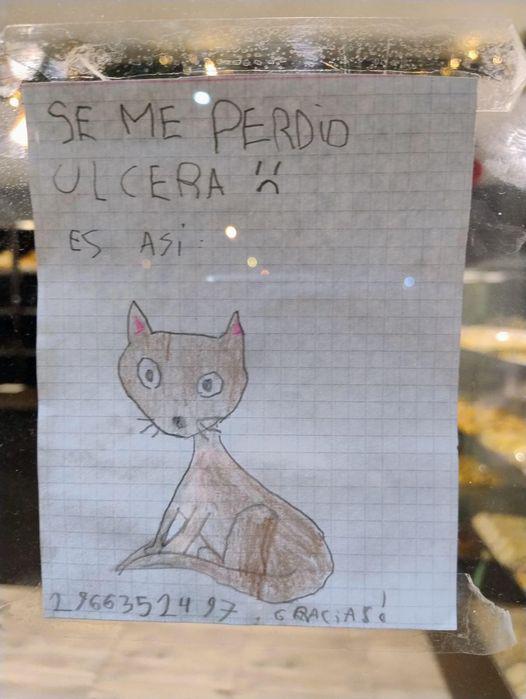 SE ME PERDiO
ULCERA :(
ES ASi:
2966352497. GRACiAS!